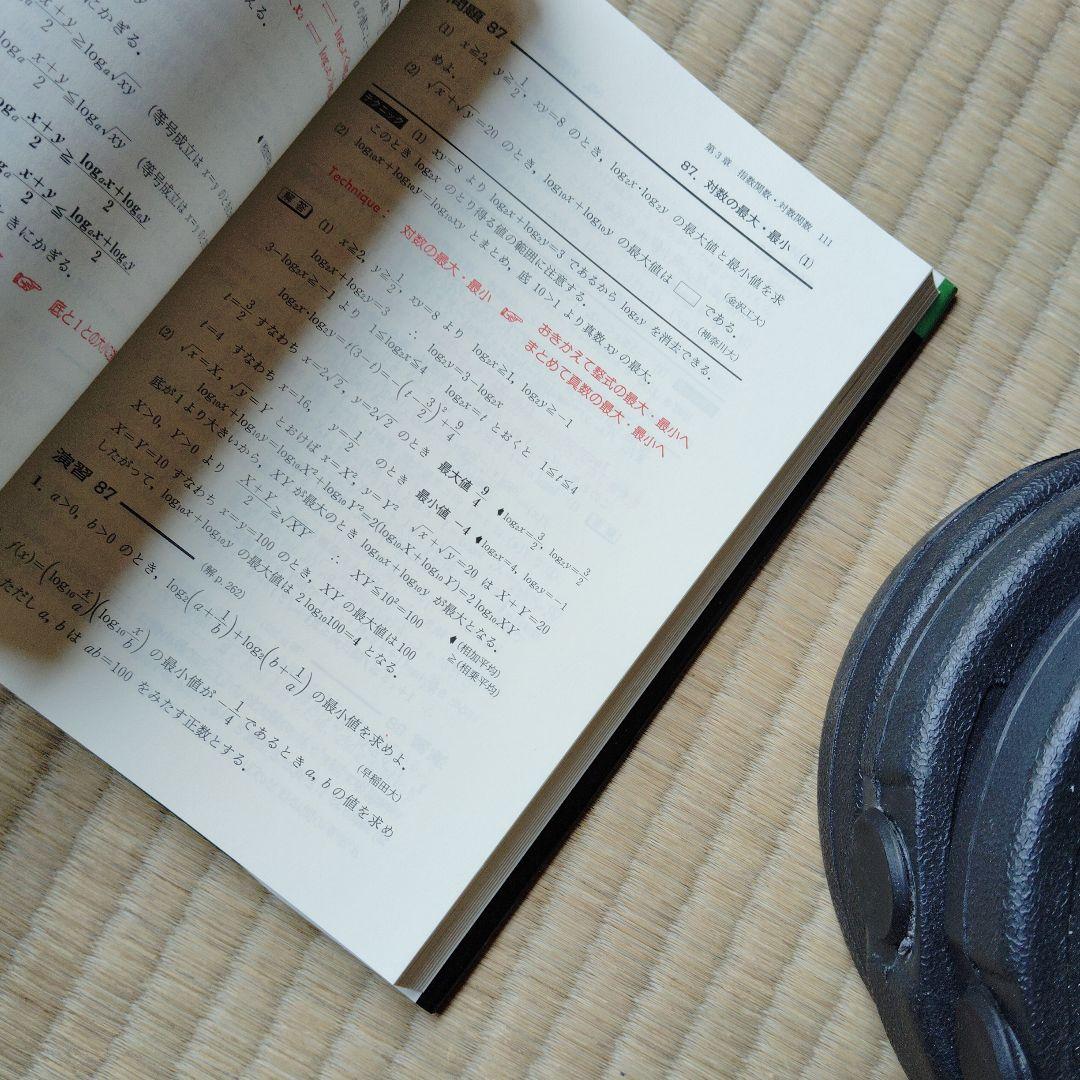 にかぎる.
(x+y)/2≧logₐ√xy
(等号成立は x=y
(x+y)/2≦logₐ√xy
(等号成立は x=y
(x+y)/2≧(logₐx+logₐy)/2
(x+y)/2≦(logₐx+logₐy)/2
ときにかぎる.
☞ 底と1との大小
第3章 指数関数・対数関数 111
87. 対数の最大・最小 (1)
問題 87
(1) x≧2, y≧1/2, xy=8 のとき, log₂x·log₂y の最大値と最小値を求
めよ. (金沢工大)
(2) √x+√y=20 のとき, log₁₀x+log₁₀y の最大値は □ である.
(神奈川大)
テクニック
(1) xy=8 より log₂x+log₂y=3 であるから log₂y を消去できる.
このとき log₂x のとり得る値の範囲に注意する.
(2) log₁₀x+log₁₀y=log₁₀xy とまとめ, 底 10>1 より真数 xy の最大.
Technique:
対数の最大・最小 ☞ おきかえて整式の最大・最小へ
まとめて真数の最大・最小へ
解答
(1) x≧2, y≧1/2, xy=8 より log₂x≧1, log₂y≧-1
log₂x+log₂y=3 ∴ log₂y=3-log₂x
3-log₂x≧-1 より 1≦log₂x≦4 log₂x=t とおくと 1≦t≦4
log₂x·log₂y=t(3-t)=-(t-3/2)²+9/4
t=3/2 すなわち x=2√2, y=2√2 のとき 最大値 9/4 ♦log₂x=3/2, log₂y=3/2
t=4 すなわち x=16, y=1/2 のとき 最小値 -4 ♦log₂x=4, log₂y=-1
(2) √x=X, √y=Y とおけば x=X², y=Y² √x+√y=20 は X+Y=20
log₁₀x+log₁₀y=log₁₀X²+log₁₀Y²=2(log₁₀X+log₁₀Y)=2log₁₀XY
底が1より大きいから, XY が最大のとき log₁₀x+log₁₀y が最大となる.
X>0, Y>0 より (X+Y)/2≧√XY ∴ XY≦10²=100 ♦(相加平均)
≧(相乗平均)
X=Y=10 すなわち x=y=100 のとき, XY の最大値は 100
したがって, log₁₀x+log₁₀y の最大値は 2log₁₀100=4 となる.
演習 87 (解 p.262)
1. a>0, b>0 のとき, log₂(a+1/b)+log₂(b+1/a) の最小値を求めよ.
(早稲田大)
f(x)=(log₁₀x/a)(log₁₀x/b) の最小値が -1/4 であるとき a, b の値を求め
ただし a, b は ab=100 をみたす正数とする.